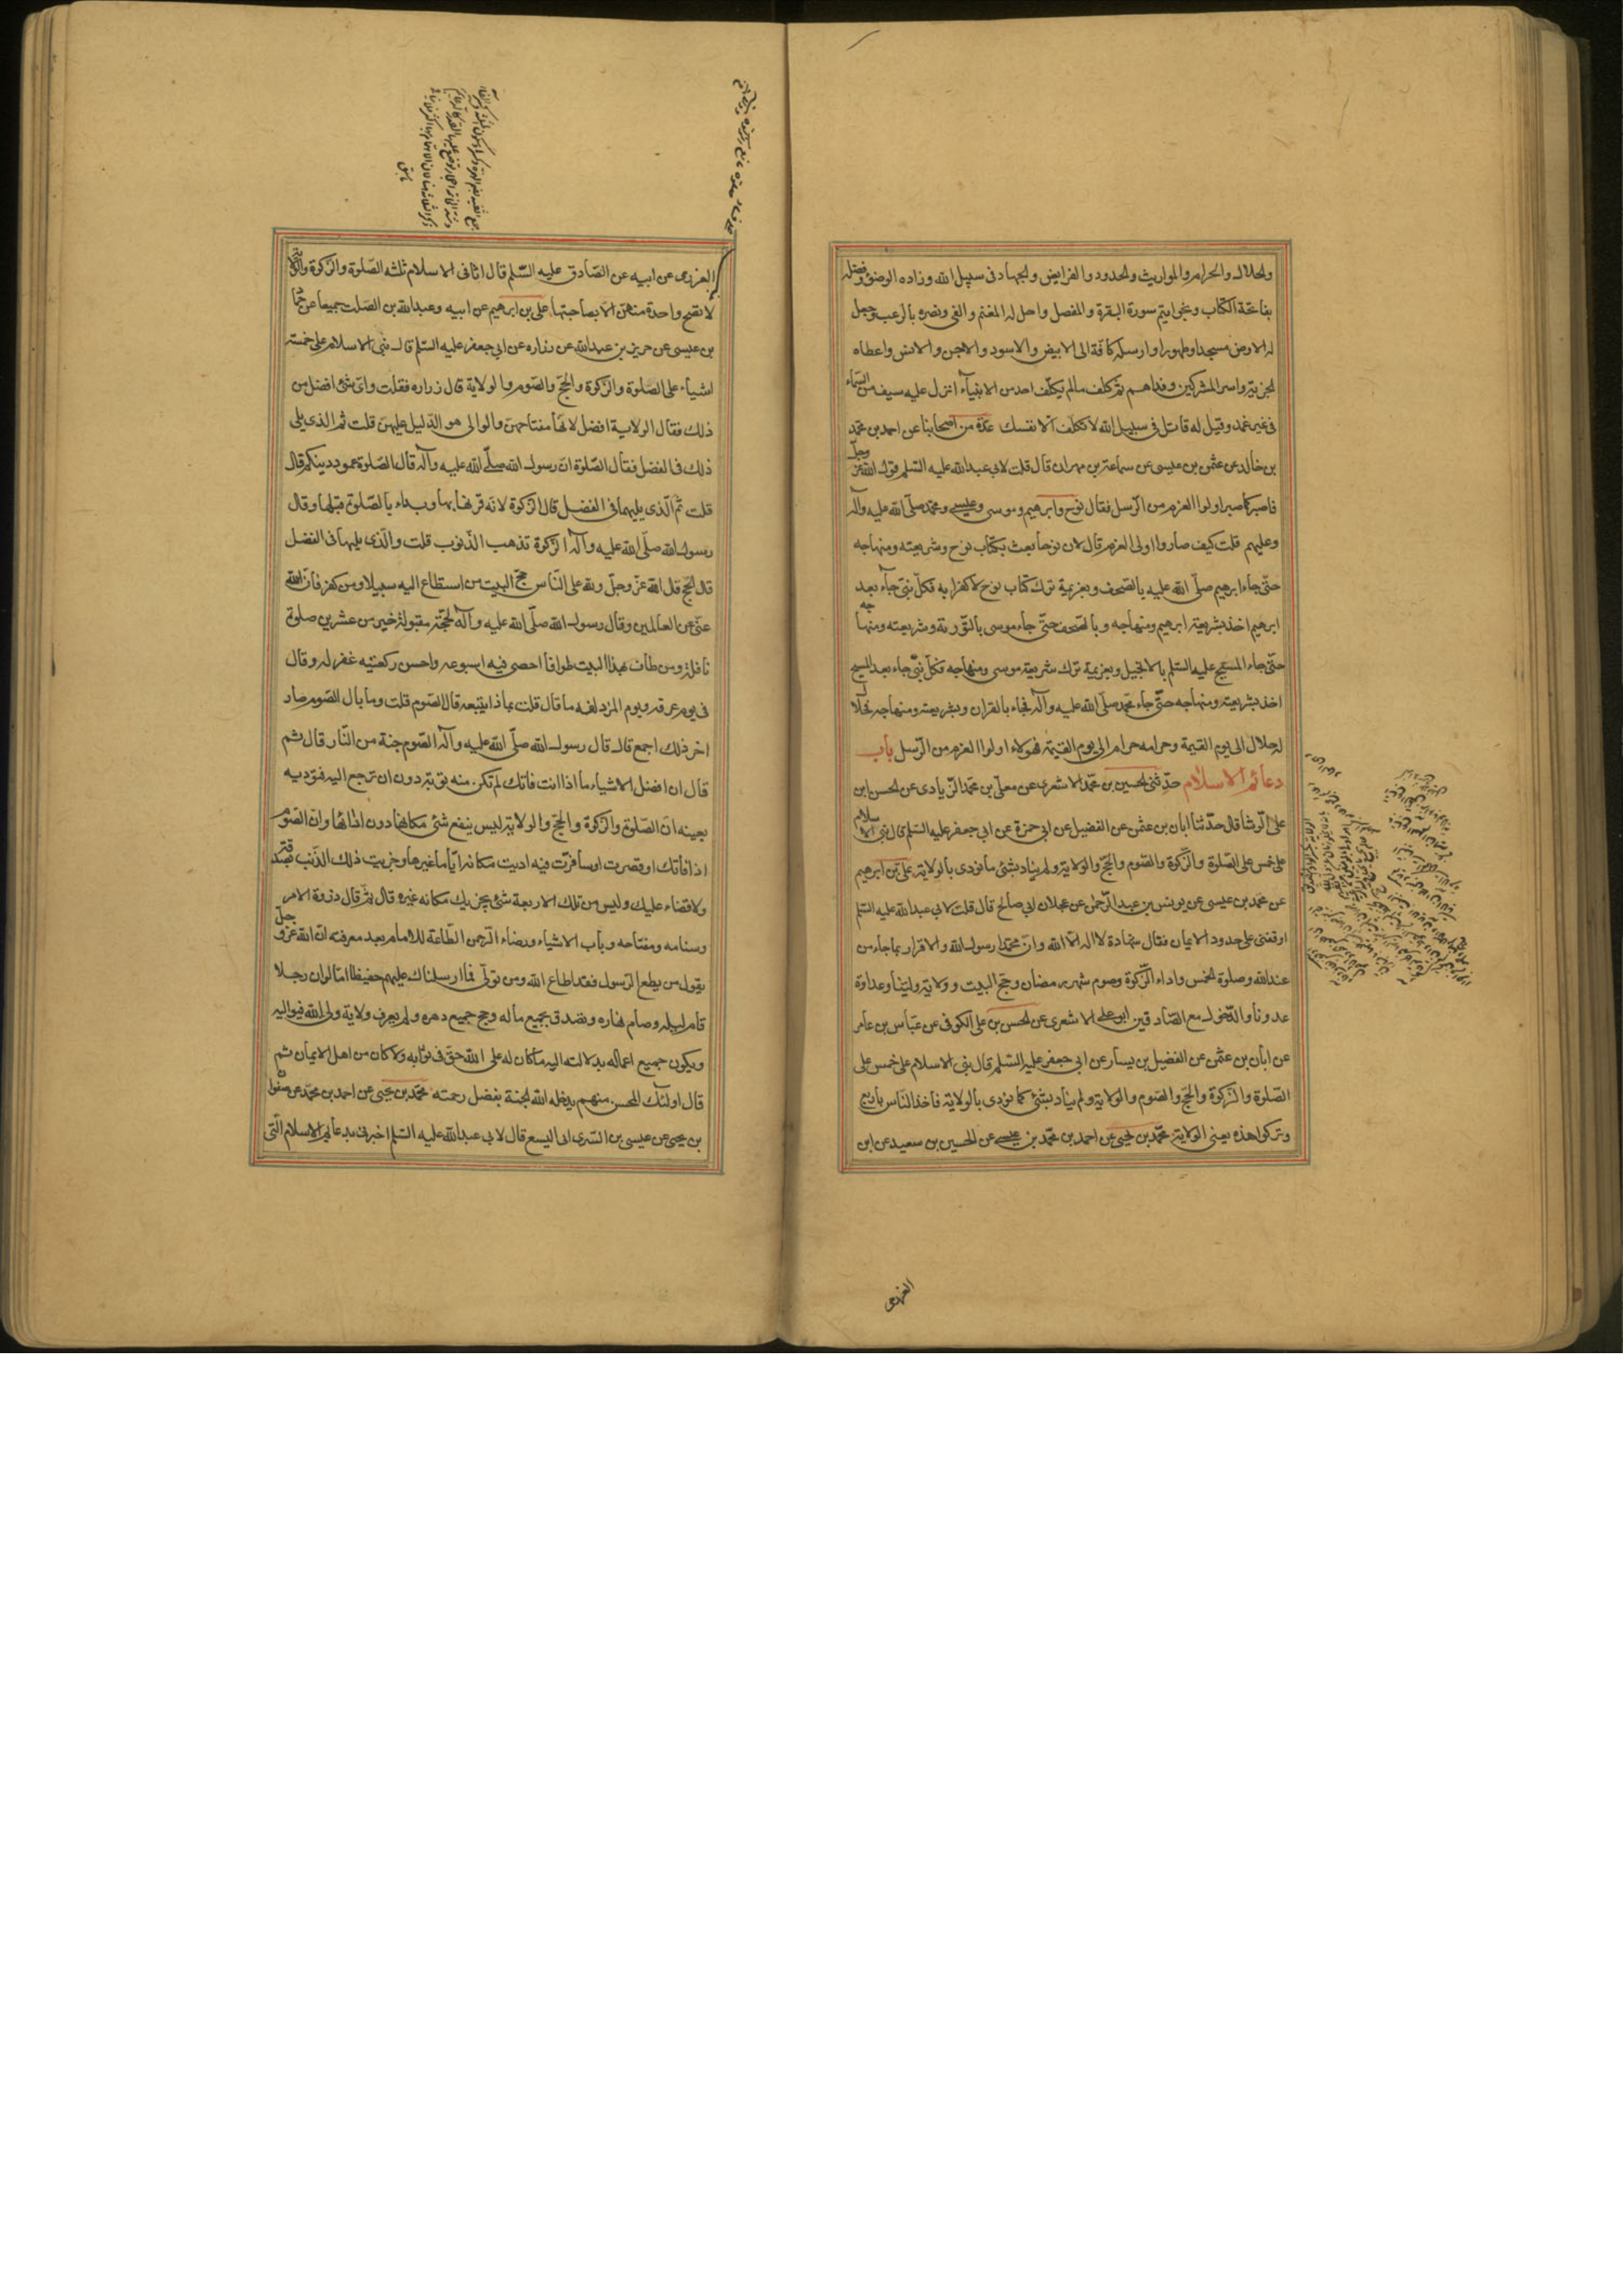 والحلال والحرام والمواريث والحدود والفرايض والجهاد فى سبيل الله وزاده الوضوء وفضله
بفاتحة الكتاب وبخواتيم سورة البقرة والمفصل واحل له المغنم والفئ ونصره بالرعب وجعل
له الارض مسجدا وطهورا وارسله كافة الى الابيض والاسود والجن والانس واعطاه
الجزية واسر المشركين وفداهم ثم كلف مالم يكلف احد من الانبياء انزل عليه سيف من السماء
فى غير غمد وقيل له قاتل فى سبيل الله لا تكلف الا نفسك عدة من اصحابنا عن احمد بن محمد
بن خالد عن عثمن بن عيسى عن سماعة بن مهران قال قلت لابى عبد الله عليه السلم قول الله عز وجل
فاصبر كما صبر اولوا العزم من الرسل فقال نوح وابرهيم وموسى وعيسى ومحمد صلى الله عليه وآله
وعليهم قلت كيف صاروا اولى العزم قال لان نوحا بعث بكتاب نوح وشريعته ومنهاجه
حتى جاء ابرهيم صلى الله عليه بالصحف وبعزيمة ترك كتاب نوح لا كفرا به فكل نبى جاء بعد
ابرهيم اخذ بشريعة ابرهيم ومنهاجه وبالصحف حتى جاء موسى بالتورية وشريعته ومنهاجه
حتى جاء المسيح عليه السلم بالانجيل وبعزيمة ترك شريعة موسى ومنهاجه فكل نبى جاء بعد المسيح
اخذ بشريعته ومنهاجه حتى جاء محمد صلى الله عليه وآله فجاء بالقران وبشريعته ومنهاجه فحلا
له حلال الى يوم القيمة وحرامه حرام الى يوم القيمة فهولاء اولوا العزم من الرسل باب
دعائم الاسلام حدثنى الحسين بن محمد الاشعرى عن معلى بن محمد الزيادى عن الحسن ابن
على الوشا قال حدثنا ابان بن عثمن عن الفضيل عن ابى حمزة عن ابى جعفر عليه السلم قال بنى الاسلام
على خمس على الصلوة والزكوة والصوم والحج والولاية ولم يناد بشئ ما نودى بالولاية على بن ابرهيم
عن محمد بن عيسى عن يونس بن عبد الرحمن عن عجلان ابى صالح قال قلت لابى عبد الله عليه السلم
اوقفنى على حدود الايمان فقال شهادة لا اله الا الله وان محمدا رسول الله والاقرار بما جاء من
عند الله وصلوة الخمس واداء الزكوة وصوم شهر رمضان وحج البيت وولاية ولينا وعداوة
عدونا والدخول مع الصادقين ابو على الاشعرى عن الحسن بن على الكوفى عن عباس بن عامر
عن ابان بن عثمن عن الفضيل بن يسار عن ابى جعفر عليه السلم قال بنى الاسلام على خمس على
الصلوة والزكوة والحج والصوم والولاية ولم يناد بشئ كما نودى بالولاية فاخذ الناس باربع
وتركوا هذه يعنى الولاية محمد بن يحيى عن احمد بن محمد بن عيسى عن الحسين بن سعيد عن ابن
العرزمى
العرزمى عن ابيه عن الصادق عليه السلم قال اثافى الاسلام ثلثه الصلوة والزكوة والولاية
لا تصح واحدة منهن الا بصاحبتها على بن ابرهيم عن ابيه وعبد الله بن الصلت جميعا عن حماد
بن عيسى عن حريز بن عبد الله عن زراره عن ابى جعفر عليه السلم قال بنى الاسلام على خمسة
اشياء على الصلوة والزكوة والحج والصوم والولاية قال زراره فقلت واى شئ افضل من
ذلك فقال الولاية افضل لانها مفتاحهن والوالى هو الدليل عليهن قلت ثم الذى يلى
ذلك فى الفضل فقال الصلوة ان رسول الله صلى الله عليه وآله قال الصلوة عمود دينكم قال
قلت ثم الذى يليهما فى الفضل قال الزكوة لانه قرنها بها وبداء بالصلوة قبلها وقال
رسول الله صلى الله عليه وآله الزكوة تذهب الذنوب قلت والذى يليها فى الفضل
قال الحج قال الله عز وجل ولله على الناس حج البيت من استطاع اليه سبيلا ومن كفر فان الله
غنى عن العالمين وقال رسول الله صلى الله عليه وآله لحجة مقبولة خير من عشرين صلوة
نافلة ومن طاف بهذا البيت طوافا احصى فيه اسبوعه واحسن ركعتيه غفر له وقال
فى يوم عرفه ويوم المزدلفه ما قال قلت بماذا يتبعه قال الصوم قلت وما بال الصوم صار
اخر ذلك اجمع قال قال رسول الله صلى الله عليه وآله الصوم جنة من النار قال ثم
قال ان افضل الاشياء ما اذا انت فاتك لم تكن منه توبة دون ان ترجع اليه فتؤديه
بعينه ان الصلوة والزكوة والحج والولاية ليس ينفع شئ مكانها دون ادائها وان الصوم
اذا فاتك او قصرت او سافرت فيه اديت مكانه اياما غيرها وجزيت ذلك الذنب بصدقة
ولا قضاء عليك وليس من تلك الاربعة شئ يجزيك مكانه غيره قال ثم قال ذروة الامر
وسنامه ومفتاحه وباب الاشياء ورضاء الرحمن الطاعة للامام بعد معرفته ان الله عز وجل
يقول من يطع الرسول فقد اطاع الله ومن تولى فما ارسلناك عليهم حفيظا اما لو ان رجلا
قام ليله وصام نهاره وتصدق بجميع ماله وحج جميع دهره ولم يعرف ولاية ولى الله فيواليه
ويكون جميع اعماله بدلالته اليه ما كان له على الله حق فى ثوابه ولا كان من اهل الايمان ثم
قال اولئك المحسن منهم يدخله الله الجنة بفضل رحمته محمد بن يحيى عن احمد بن محمد عن صفوان
بن يحيى عن عيسى بن السرى ابى اليسع قال قلت لابى عبد الله عليه السلم اخبرنى بدعائم الاسلام التى